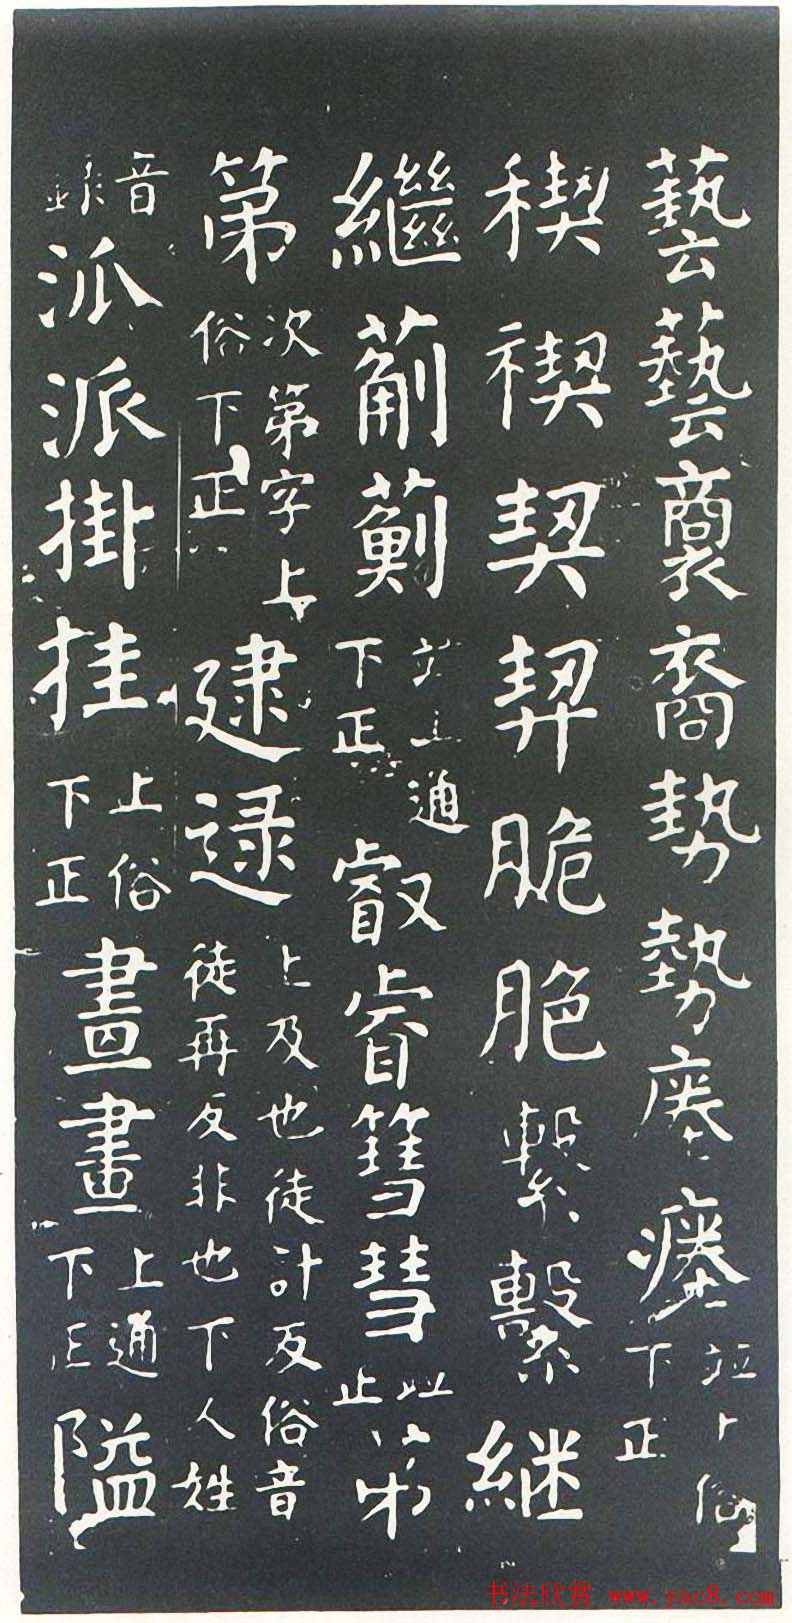 藝藝裔勢勢瘞瘞並上俗下正
稧禊契脆脃繫繫継
繼葪薊並上通下正叡睿篲彗並正苐
第次第字上俗下正逮逯上及也徒計反俗音徒再反非也下人姓
音錄派派掛挂上俗下正畫畫上通下正隘
书法欣赏 www.yac8.com